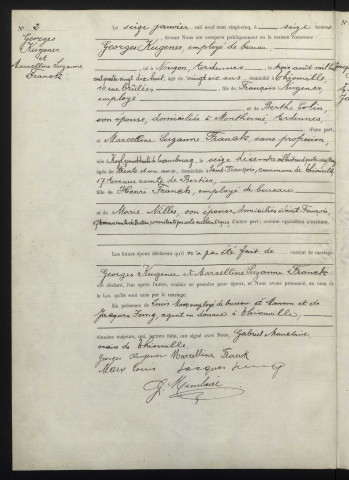 N° 2
Georges
Kugener
et
Marcelline Suzanne
Franck
Le seize janvier mil neuf cent vingt-cinq, à seize heures
devant Nous ont comparu publiquement en la maison commune :
Georges Kugener, employé de bureau
né à Ardennes, le août mil huit
cent quatre-vingt dix huit, âgé de vingt six ans, domicilié à Thionville,
fils de François Kugener,
employé
et de Berthe Colin,
son épouse, domiciliés à Monthermé, Ardennes,
d'une part,
et Marcelline Suzanne Franck, sans profession,
née à Luxembourg, le seize décembre mil huit cent quatre-vingt
âgée de trente et un ans, domiciliée à Saint-François, commune de Thionville
17 Avenue comte de Bertier,
fille de Henri Franck, employé de bureau
et de Marie Nilles, son épouse, domiciliés à Saint François,
d'autre part ;
Les futurs époux déclarent qu'il n'a pas été fait de contrat de mariage.
Georges Kugener et Marcelline Suzanne Franck
ont déclaré, l'un après l'autre, vouloir se prendre pour époux, et Nous avons prononcé, au nom de
la Loi, qu'ils sont unis par le mariage.
En présence de Louis Marx, employé de bureau à et de
Jacques Jung, agent en douane à Thionville,
témoins majeurs, qui, lecture faite, ont signé avec Nous, Gabriel Mauclaire
maire de Thionville.
Georges Kugener Marcelline Franck
Marx Louis Jacques Jung
G. Mauclaire